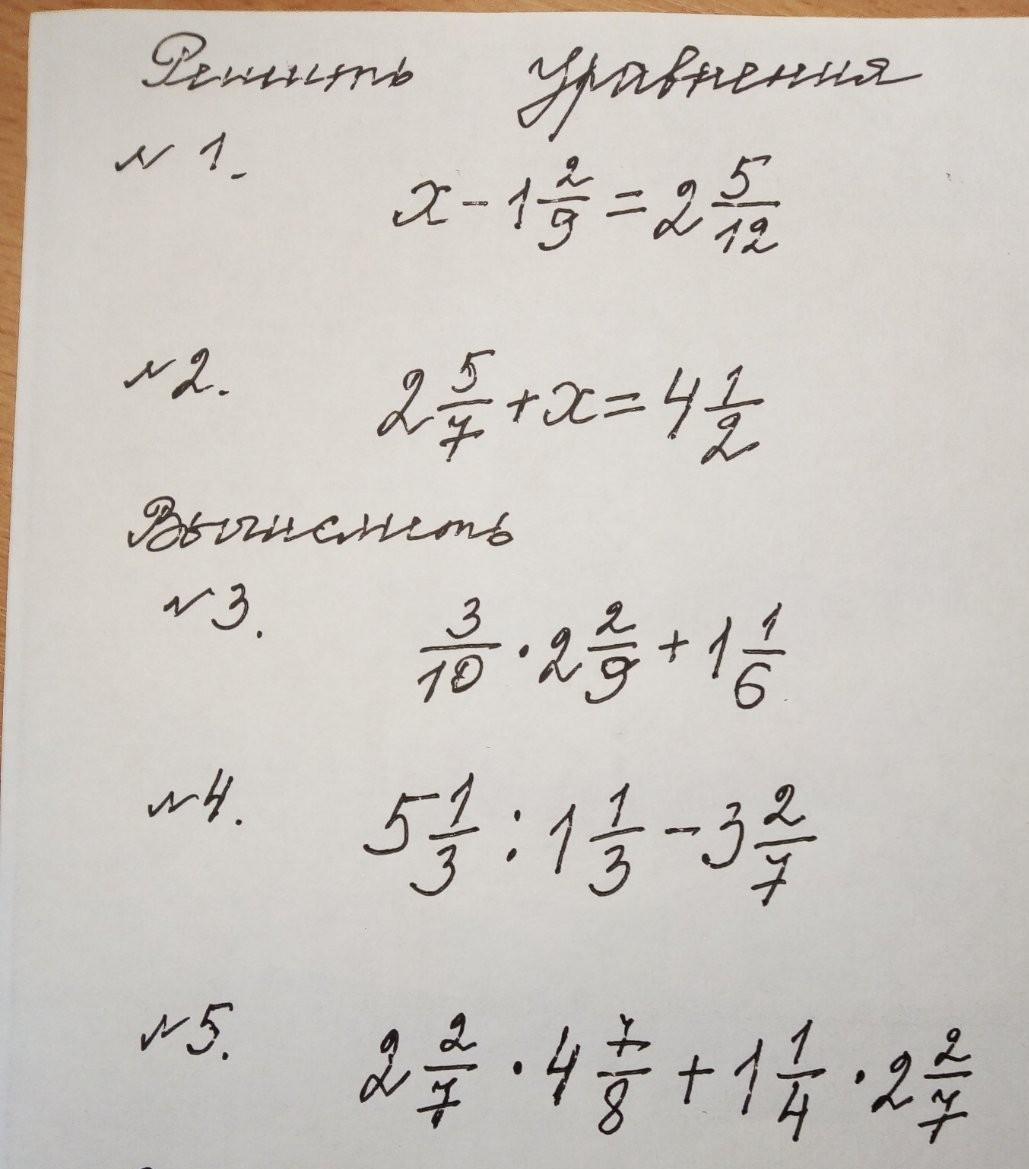 Решить Уравнения
№ 1.
x - 1 2/9 = 2 5/12
№ 2.
2 5/7 + x = 4 1/2
Вычислить
№ 3.
3/10 · 2 2/9 + 1 1/6
№ 4.
5 1/3 : 1 1/3 - 3 2/7
№ 5.
2 2/7 · 4 7/8 + 1 1/4 · 2 2/7